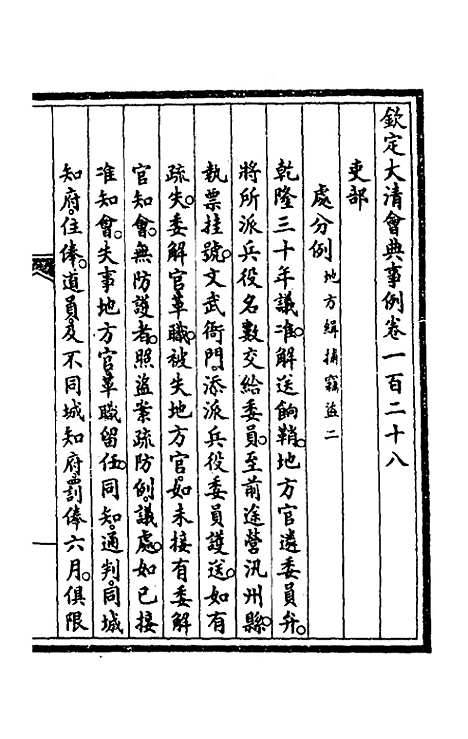 欽定大清會典事例卷一百二十八
吏部
處分例 地方緝捕竊盜二
乾隆三十年議准。解送餉鞘。地方官遴委員弁。
將所派兵役名數交給委員。至前途營汛州縣。
執票挂號。文武衙門。添派兵役委員護送。如有
疏失。委解官革職。被失地方官。如未接有委解
官知會。無防護者。照盜案疏防例。議處。如已接
准知會。失事地方官革職留任。同知。通判。同城
知府。住俸。道員。及不同城知府。罰俸六月。俱限